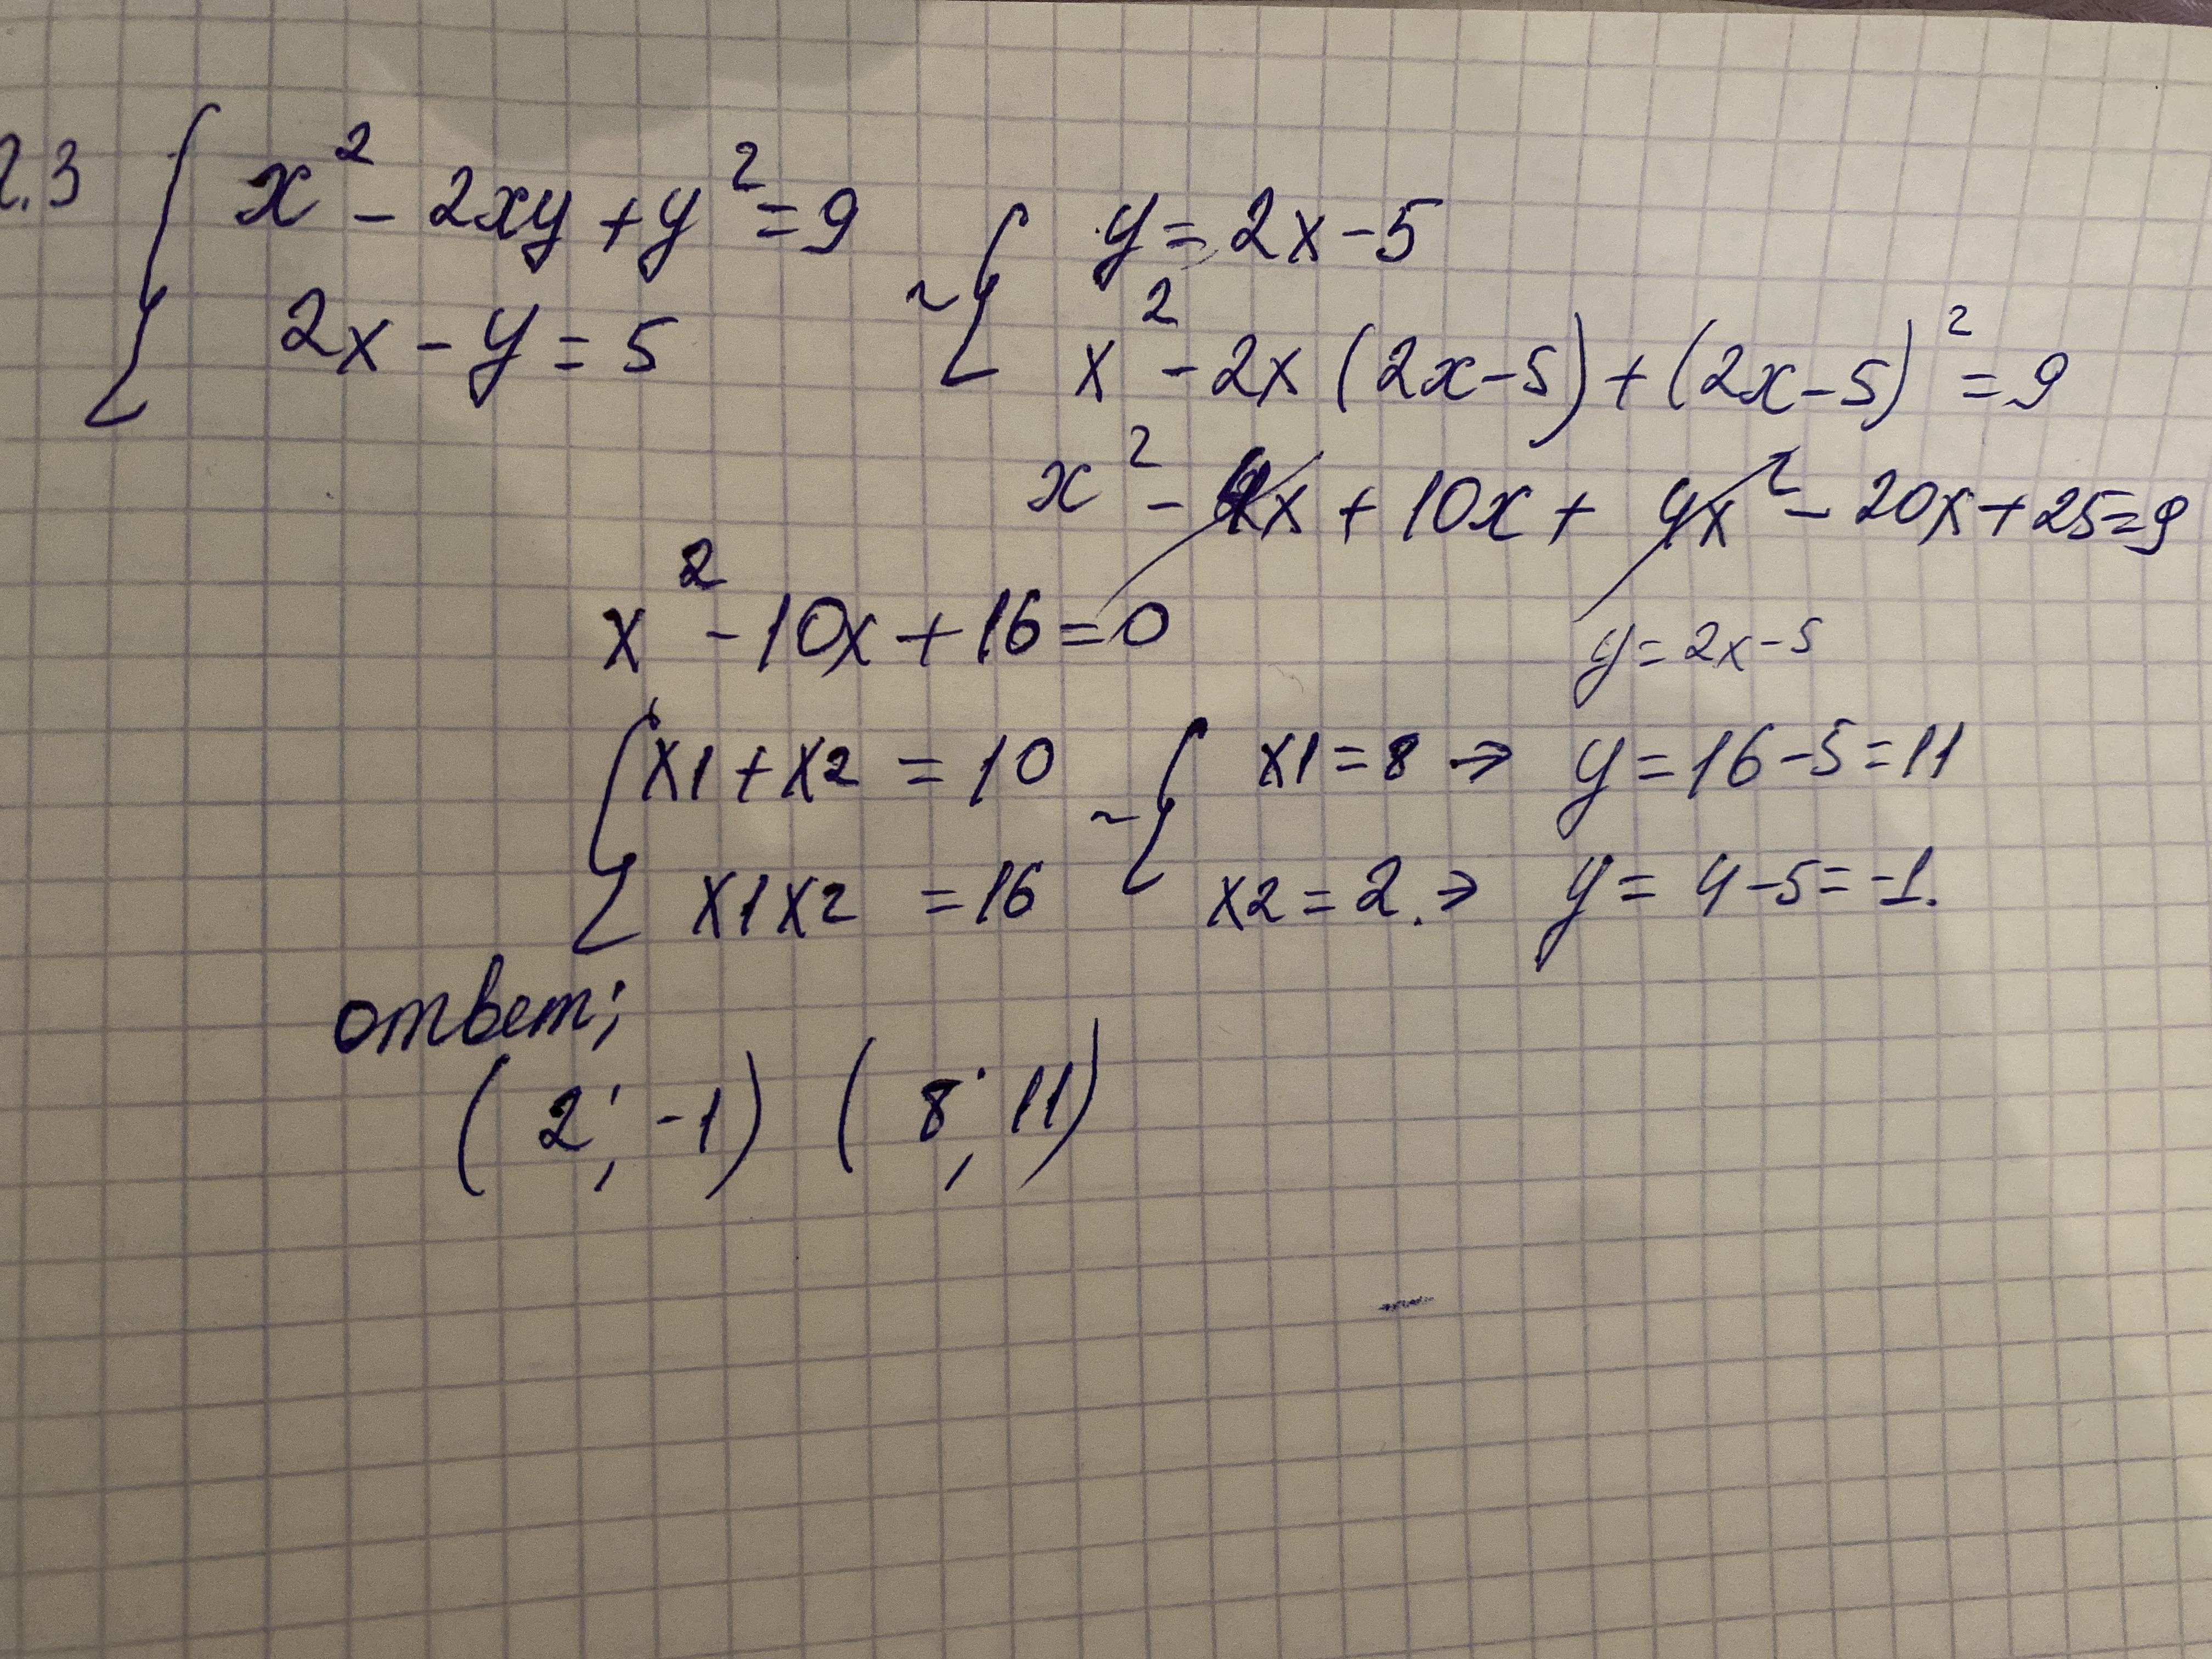 2.3 { x² - 2xy + y² = 9
2x - y = 5
~ { y = 2x - 5
x² - 2x (2x - 5) + (2x - 5)² = 9
x² - 4x + 10x + 4x² - 20x + 25 = 9
x² - 10x + 16 = 0
y = 2x - 5
{ x1 + x2 = 10 ~ { x1 = 8 → y = 16 - 5 = 11
x1x2 = 16 x2 = 2. → y = 4 - 5 = -1.
ответ;
(2; -1) (8; 11)